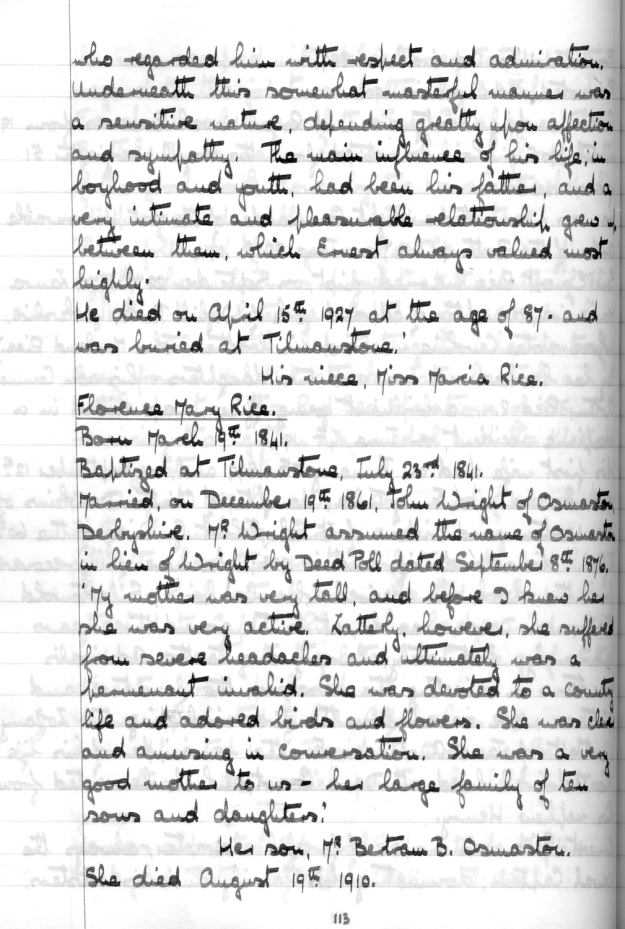 who regarded him with respect and admiration.
Underneath this somewhat masterful manner was
a sensitive nature, depending greatly upon affection
and sympathy. The main influence of his life, in
boyhood and youth, had been his father, and a
very intimate and pleasurable relationship grew
between them, which Ernest always valued most
highly.
He died on April 15th 1927 at the age of 87. and
was buried at Tilmanstone.'
His niece, Miss Marcia Rice.
Florence Mary Rice.
Born March 19th 1841.
Baptized at Tilmanstone, July 23rd 1841.
Married, on December 19th 1861, John Wright of Osmaston,
Derbyshire. Mr Wright assumed the name of Osmaston
in lieu of Wright by Deed Poll dated September 8th 1876.
'My mother was very tall, and before I knew her
she was very active. Latterly, however, she suffered
from severe headaches and ultimately was a
permenant invalid. She was devoted to a county
life and adored birds and flowers. She was clear
and amusing in conversation. She was a very
good mother to us - her large family of ten
sons and daughters.'
Her son, Mr Bertram B. Osmaston.
She died August 19th 1910.
113